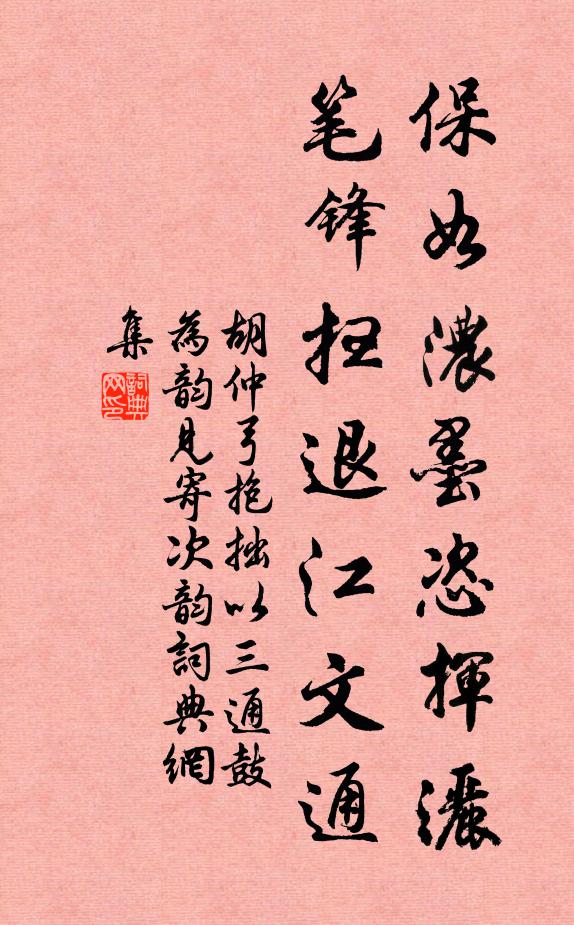 保如濃墨恣揮灑
笔锋扫退江文通
胡仲弓抱拙以三通鼓
為韵见寄次韵詞典網
集
詞典网印